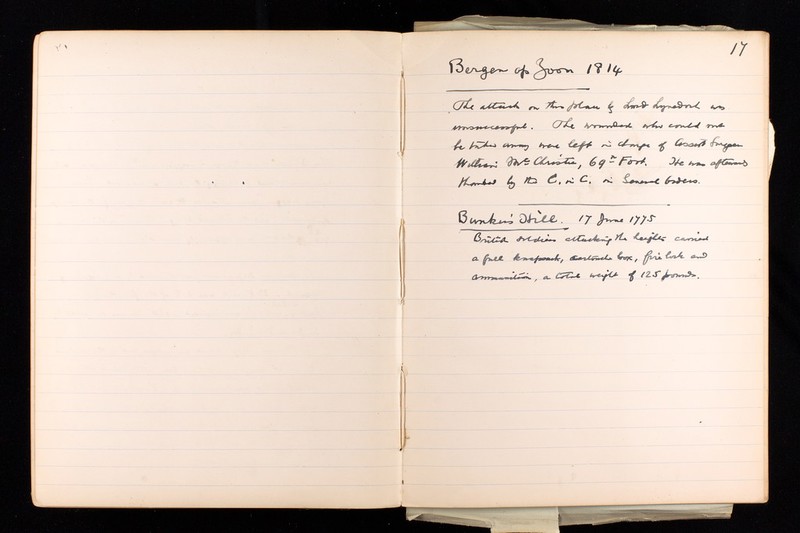 17
Bergen op Zoom 1814
The attack on this place by Lord Lynedoch was
unsuccessful. The wounded who could not
be taken away were left in charge of Assist Surgeon
William McChristie, 69th Foot. He was afterwards
thanked by the C. in C. in General Orders.
Bunker's Hill. 17 June 1775
British soldiers attacking the heights carried
a full knapsack, cartouche box, fire lock and
ammunition, a total weight of 125 pounds.